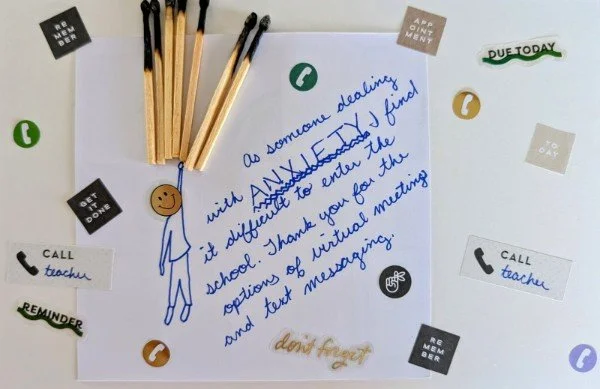 RE
MEM
BER
APP
OINT
MENT
DUE TODAY
as someone dealing
with ANXIETY, I find
it difficult to enter the
school. Thank you for the
options of virtual meeting
and text messaging.
TO
DAY
GET
IT
DONE
CALL
teacher
CALL
teacher
REMINDER
don't forget
RE
MEM
BER